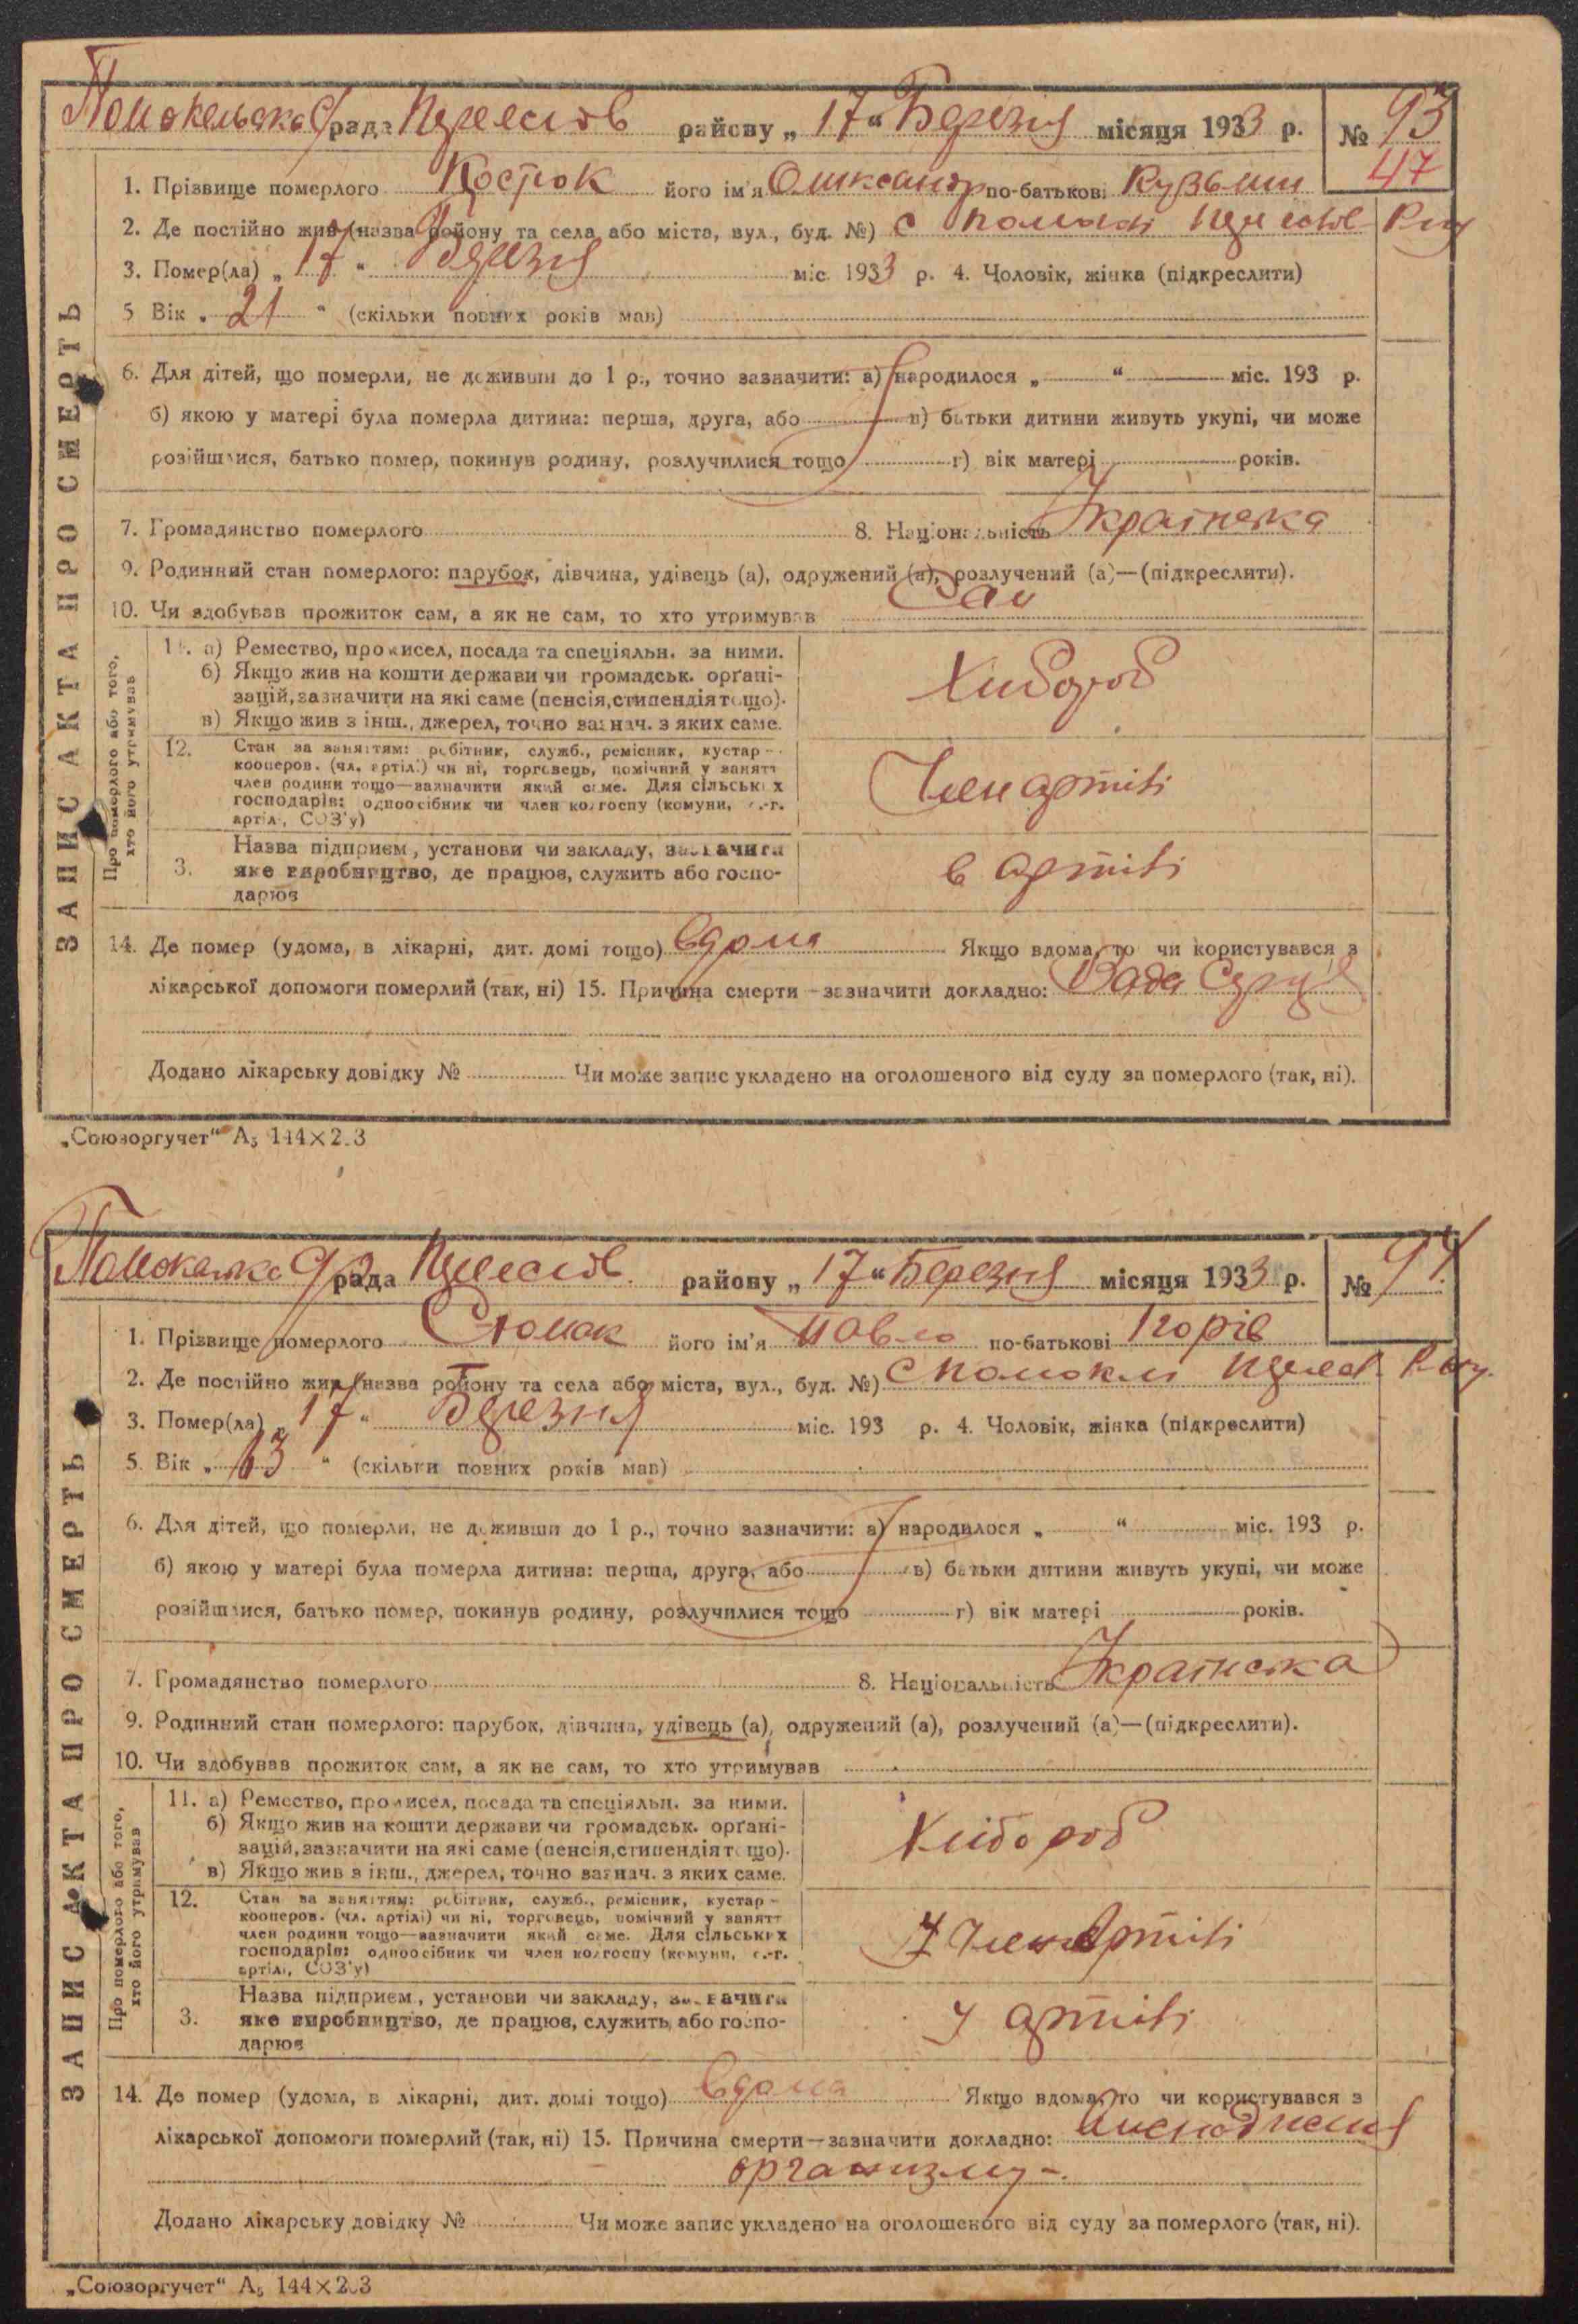 рада Переяслів району „ 17 “ Березня місяця 1933 р. № 93
47
1. Прізвище померлого Костюк його ім'я Олександр по-батькові Кузьми
2. Де постійно жив (назва району та села або міста, вул., буд. №) с Помоклі Переяслів
3. Помер(ла) „ 17 “ Березня міс. 1933 р. 4. Чоловік, жінка (підкреслити)
5 Вік „ 21 “ (скільки повних років мав)
6. Для дітей, що померли, не доживши до 1 р., точно зазначити: а) народилося „ “ міс. 193 р.
б) якою у матері була померла дитина: перша, друга, або в) батьки дитини живуть укупі, чи може
розійшлися, батько помер, покинув родину, розлучилися тощо г) вік матері років.
7. Громадянство померлого 8. Національність Українська
9. Родинний стан померлого: парубок, дівчина, удівець (а), одружений (а), розлучений (а)—(підкреслити).
10. Чи здобував прожиток сам, а як не сам, то хто утримував Сам
ЗАПИС АКТА ПРО СМЕРТЬ
Про померлого або того,
хто його утримував
11. а) Ремество, промисел, посада та спеціяльн. за ними.
б) Якщо жив на кошти держави чи громадськ. орґані-
зацій, зазначити на які саме (пенсія, стипендія тощо).
в) Якщо жив з інш., джерел, точно зазнач. з яких саме.
Хлібороб
12. Стан за заняттям: робітник, служб., ремісник, кустар -
кооперов. (чл. артілі) чи ні, торговець, помічний у занятт
член родини тощо—зазначити який саме. Для сільських
господарів: одноосібник чи член колгоспу (комуни, с.-г.
артілі, СОЗ'у)
Член артілі
3. Назва підприєм., установи чи закладу, зазначити
яке виробництво, де працює, служить або госпо-
дарює
в артілі
14. Де помер (удома, в лікарні, дит. домі тощо) вдома Якщо вдома, то чи користувався з
лікарської допомоги померлий (так, ні) 15. Причина смерти—зазначити докладно: Вада Серця
Додано лікарську довідку № Чи може запис укладено на оголошеного від суду за померлого (так, ні).
„Союзоргучет“ А5 144×203
рада Переяслів району „ 17 “ Березня місяця 1933 р. № 94
1. Прізвище померлого його ім'я Павло по-батькові Ігорів
2. Де постійно жив (назва району та села або міста, вул., буд. №) с Помоклі Переясл
3. Помер(ла) „ 17 “ Березня міс. 193 р. 4. Чоловік, жінка (підкреслити)
5. Вік „ 63 “ (скільки повних років мав)
6. Для дітей, що померли, не доживши до 1 р., точно зазначити: а) народилося „ “ міс. 193 р.
б) якою у матері була померла дитина: перша, друга, або в) батьки дитини живуть укупі, чи може
розійшлися, батько помер, покинув родину, розлучилися тощо г) вік матері років.
7. Громадянство померлого 8. Національність Українська
9. Родинний стан померлого: парубок, дівчина, удівець (а), одружений (а), розлучений (а)—(підкреслити).
10. Чи здобував прожиток сам, а як не сам, то хто утримував
ЗАПИС АКТА ПРО СМЕРТЬ
Про померлого або того,
хто його утримував
11. а) Ремество, промисел, посада та спеціяльн. за ними.
б) Якщо жив на кошти держави чи громадськ. орґані-
зацій, зазначити на які саме (пенсія, стипендія тощо).
в) Якщо жив з інш., джерел, точно зазнач. з яких саме.
Хлібороб
12. Стан за заняттям: робітник, служб., ремісник, кустар -
кооперов. (чл. артілі) чи ні, торговець, помічний у занятт
член родини тощо—зазначити який саме. Для сільських
господарів: одноосібник чи член колгоспу (комуни, с.-г.
артілі, СОЗ'у)
Член Артілі
3. Назва підприєм., установи чи закладу, зазначити
яке виробництво, де працює, служить або госпо-
дарює
У артілі
14. Де помер (удома, в лікарні, дит. домі тощо) вдома Якщо вдома, то чи користувався з
лікарської допомоги померлий (так, ні) 15. Причина смерти—зазначити докладно:
организму -.
Додано лікарську довідку № Чи може запис укладено на оголошеного від суду за померлого (так, ні).
„Союзоргучет“ А5 144×203